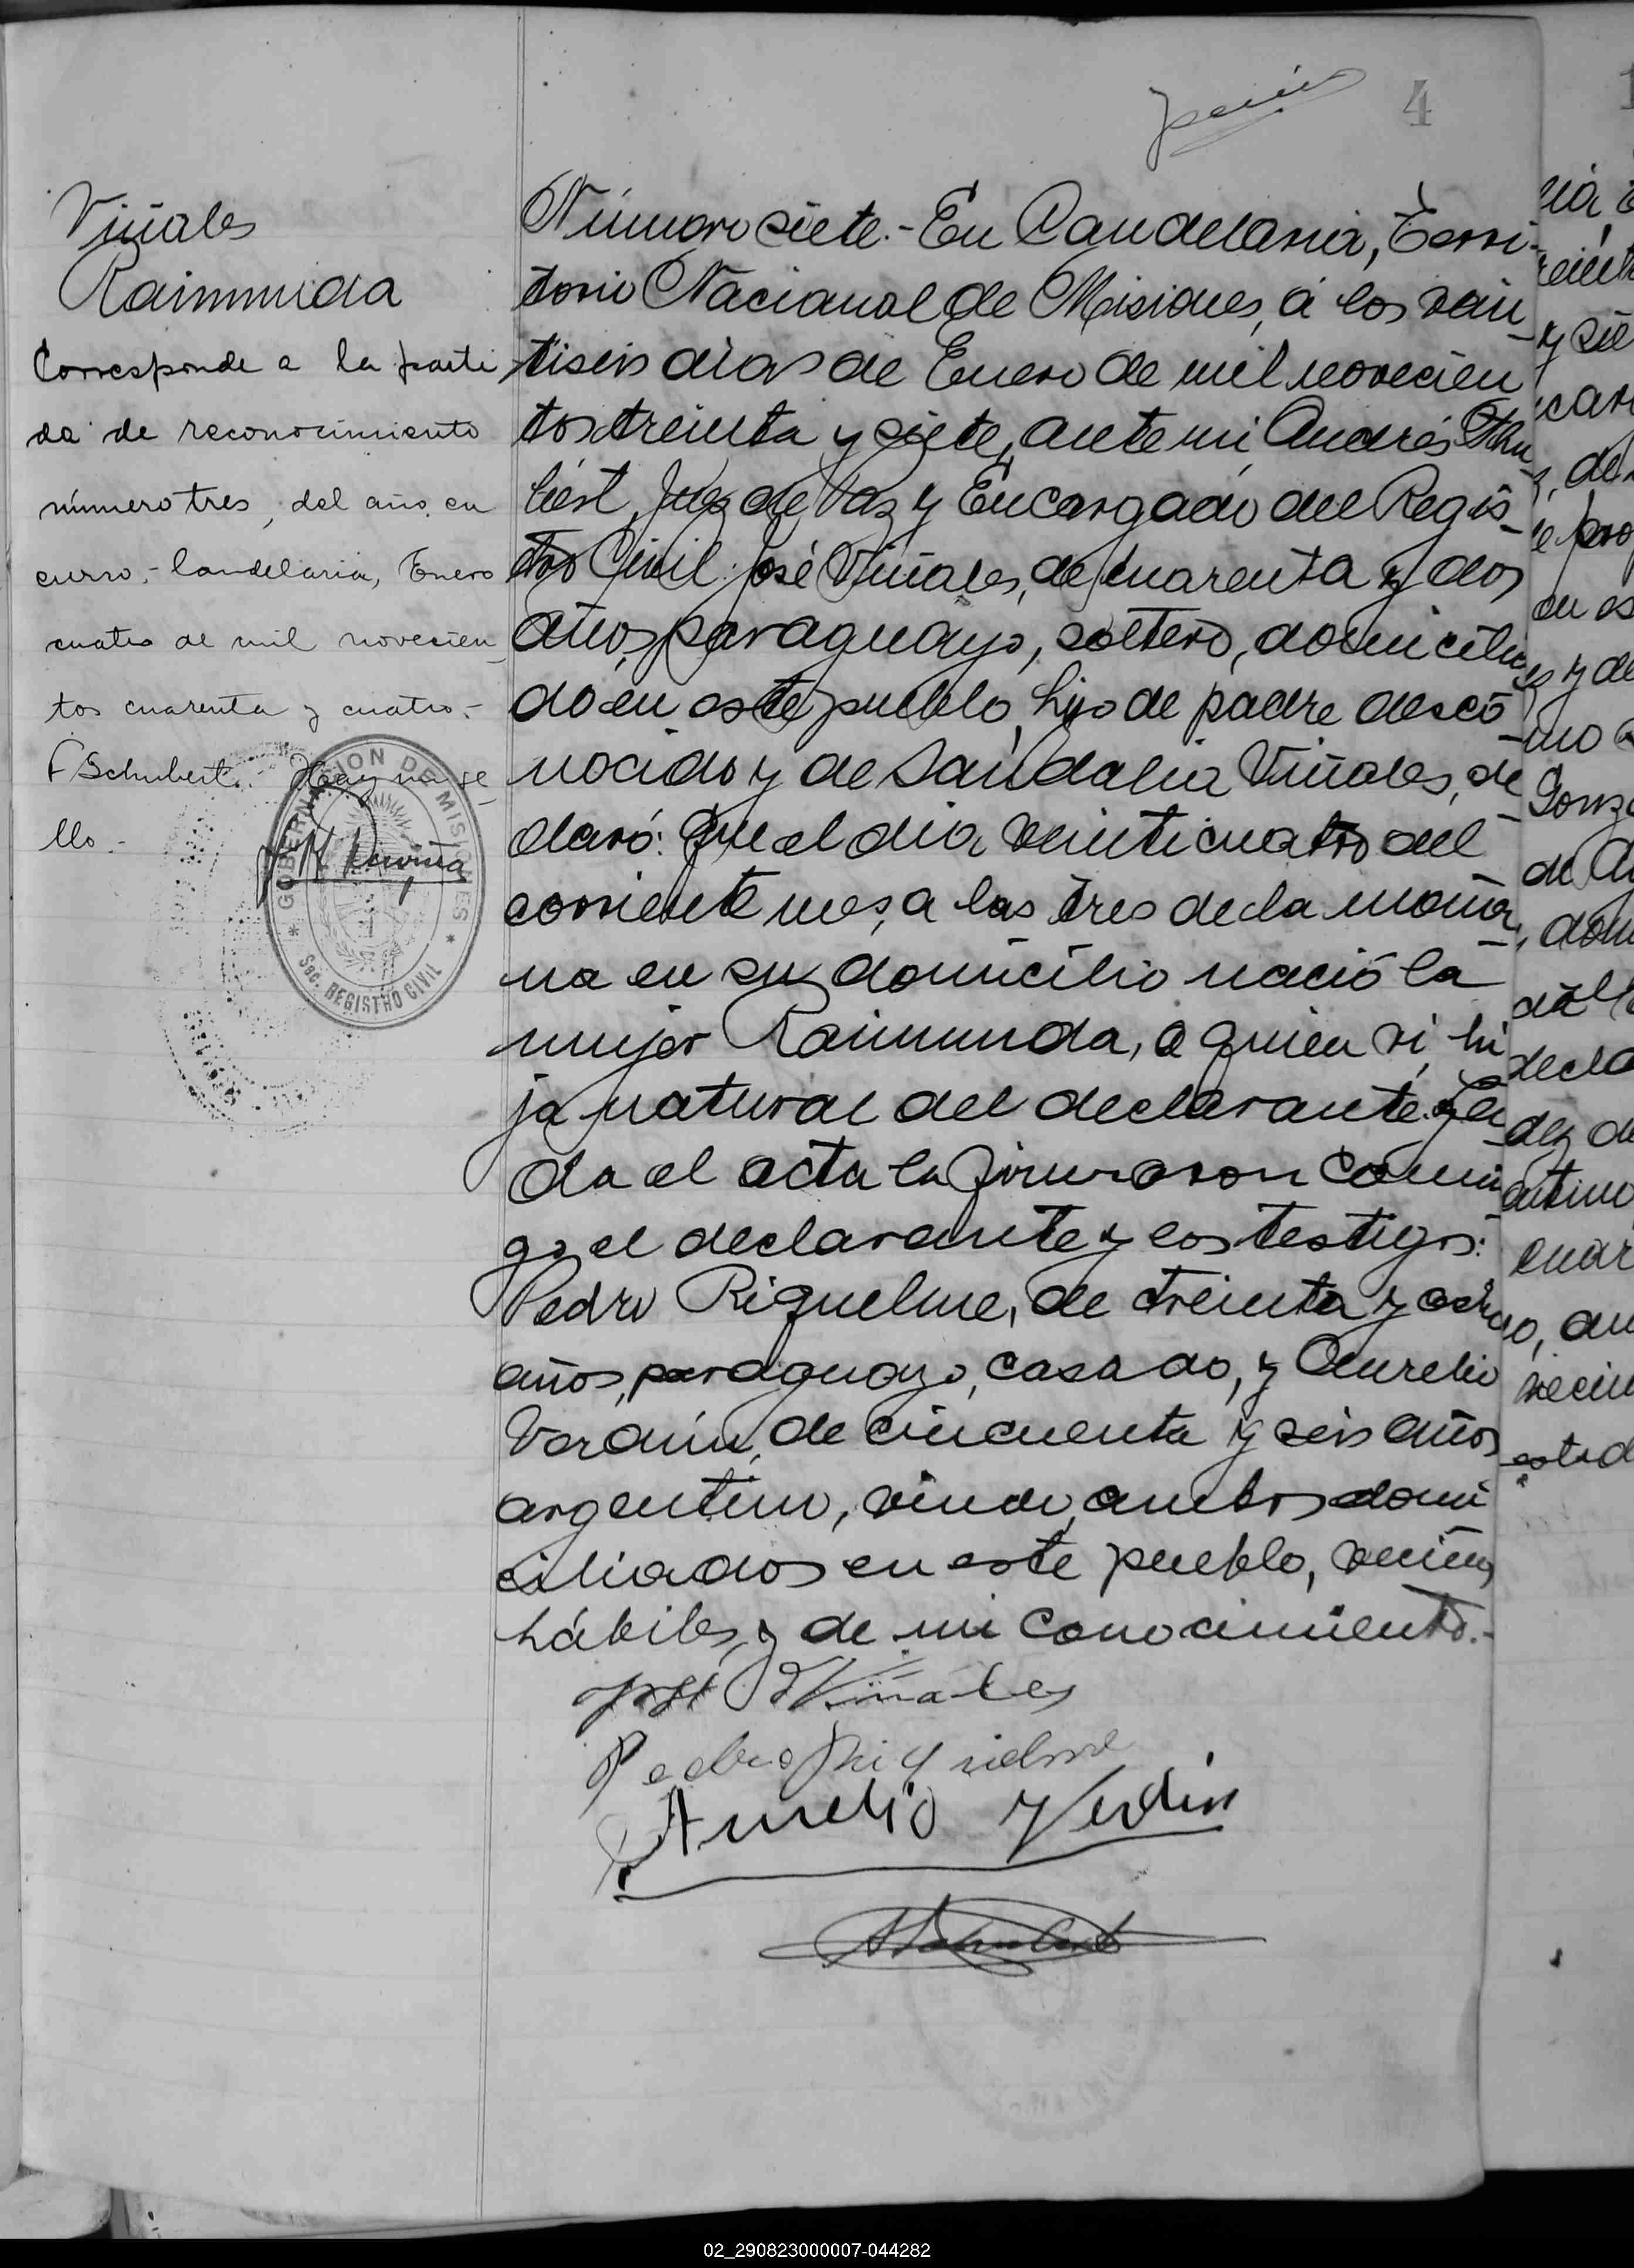 4
Viñales
Raimunda
Corresponde a la parti
da de reconocimiento
número tres, del año en
curso.- Candelaria, Enero
cuatro de mil novecien
tos cuarenta y cuatro.-
F Schubert.- Hay un se
llo.-
GOBERNACION DE MISIONES
Sec. REGISTRO CIVIL
Número siete.- En Candelaria, Terri-
torio Nacional de Misiones, á los vein
tiseis días de Enero de mil novecien
tos treinta y siete, ante mi Andrés Shu
bert, Juez de Paz y Encargado del Regis-
tro Civil: José Viñales, de cuarenta y dos
años, paraguayo, soltero, domicilia
do en este pueblo, hijo de padre desco-
nocido y de Sandalia Viñales, de-
claró: Que el día veinticuatro del
corriente mes, a las tres de la maña-
na en su domicilio nació la
mujer Raimunda, a quien vi, hi
ja natural del declarante. Leí
da el acta la firmaron conmi
go el declarante y los testigos:
Pedro Riquelme, de treinta y ocho
años, paraguayo, casado, y Aurelio
Verdún, de cincuenta y seis años
argentino, viudo, ambos domi
ciliados en este pueblo, vecinos
hábiles, y de mi conocimiento.-
José Viñales
Pedro Riquelme
Aurelio Verdin
02_290823000007-044282